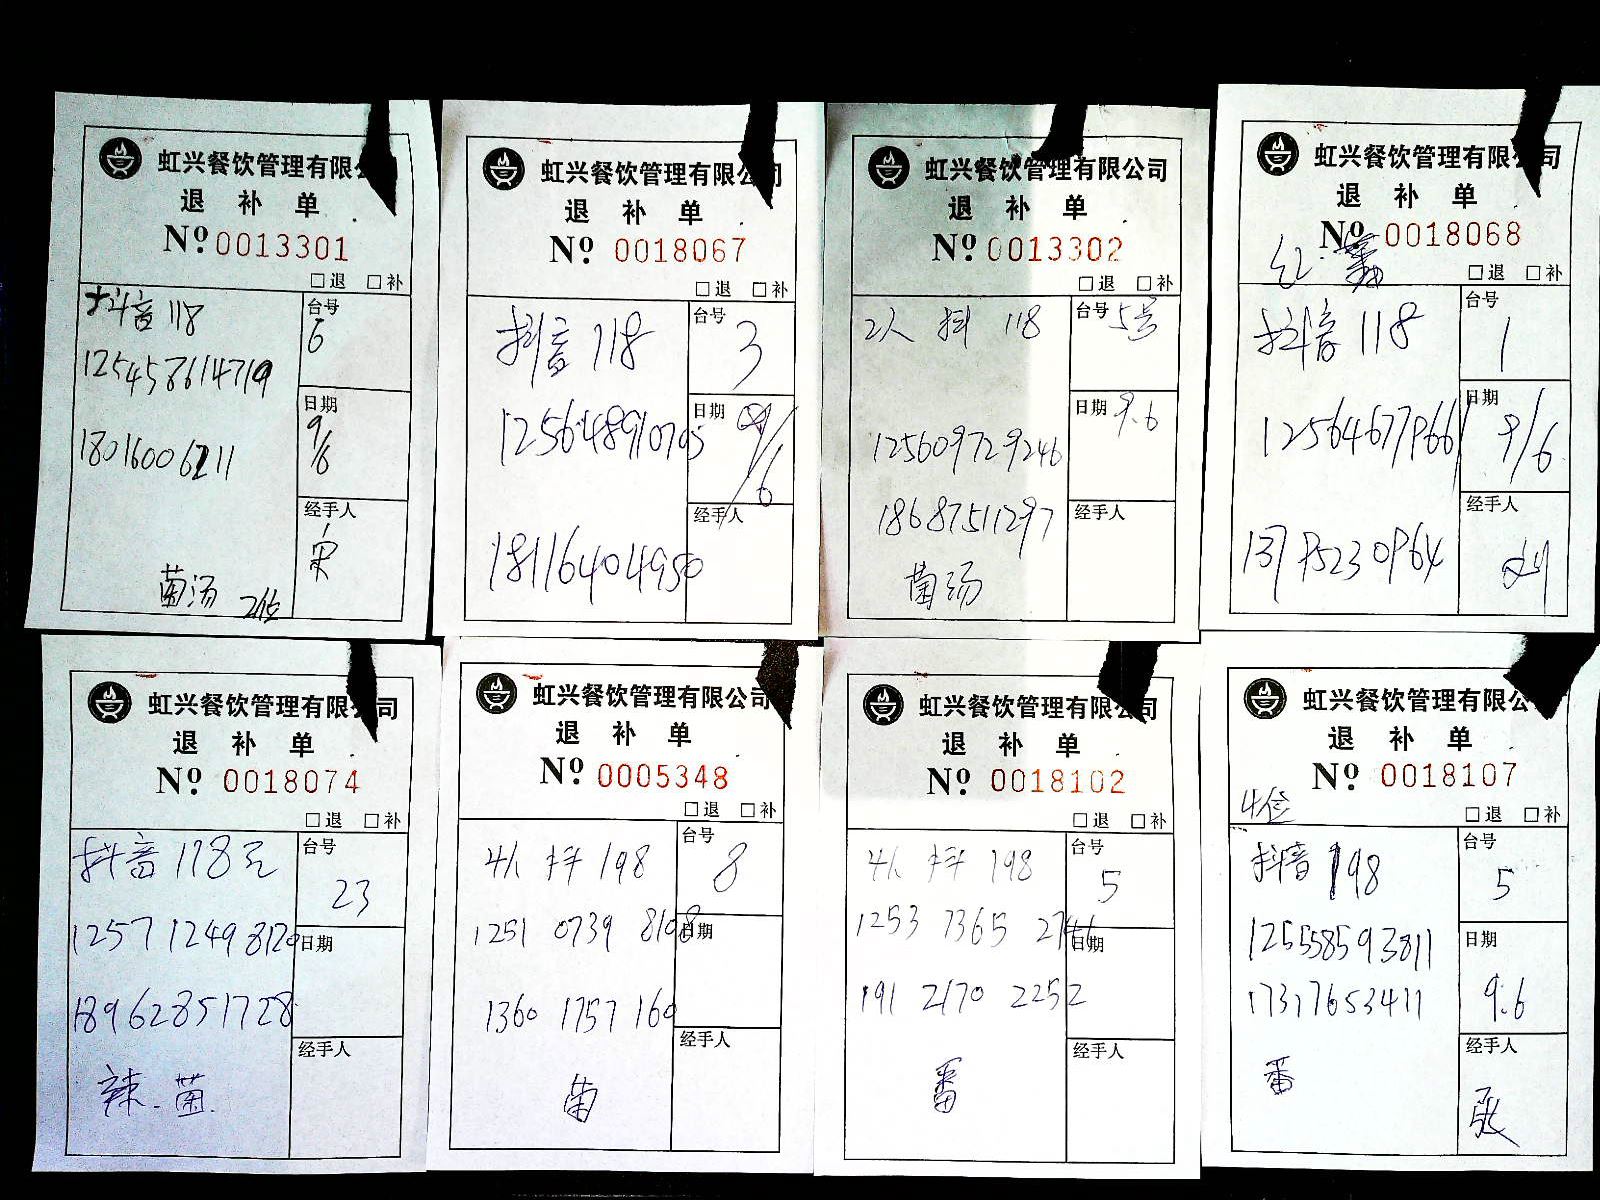 虹兴餐饮管理有限公
退 补 单
Nº 0013301
□退 □补
抖音 118
125458614719
18016006211
菌汤 2位
台号
6
日期
9/6
经手人
宋
虹兴餐饮管理有限公司
退 补 单
Nº 0018067
□退 □补
抖音118
125648910705
18116404950
台号
3
日期
9/6
经手人
虹兴餐饮管理有限公司
退 补 单
Nº 0013302
□退 □补
2人 抖 118
125609729246
18687511297
菌汤
台号 5号
日期 9.6
经手人
虹兴餐饮管理有限公司
退 补 单
Nº 0018068
红
□退 □补
抖音118
125646779661
13795230964
台号
1
日期
9/6
经手人
虹兴餐饮管理有限公司
退 补 单
Nº 0018074
□退 □补
抖音118元
1257 1249 8120
18962851728
辣.菌.
台号
23
日期
经手人
虹兴餐饮管理有限公司
退 补 单
Nº 0005348
□退 □补
4人 抖 198
1251 0739 8108
1360 1757 160
菌
台号
8
日期
经手人
虹兴餐饮管理有限公司
退 补 单
Nº 0018102
□退 □补
4人 抖 198
1253 7365 2746
191 2170 2252
番
台号
5
日期
经手人
虹兴餐饮管理有限公司
退 补 单
Nº 0018107
4位
□退 □补
抖音 198
125558593811
17317653411
番
台号
5
日期
9.6
经手人
张